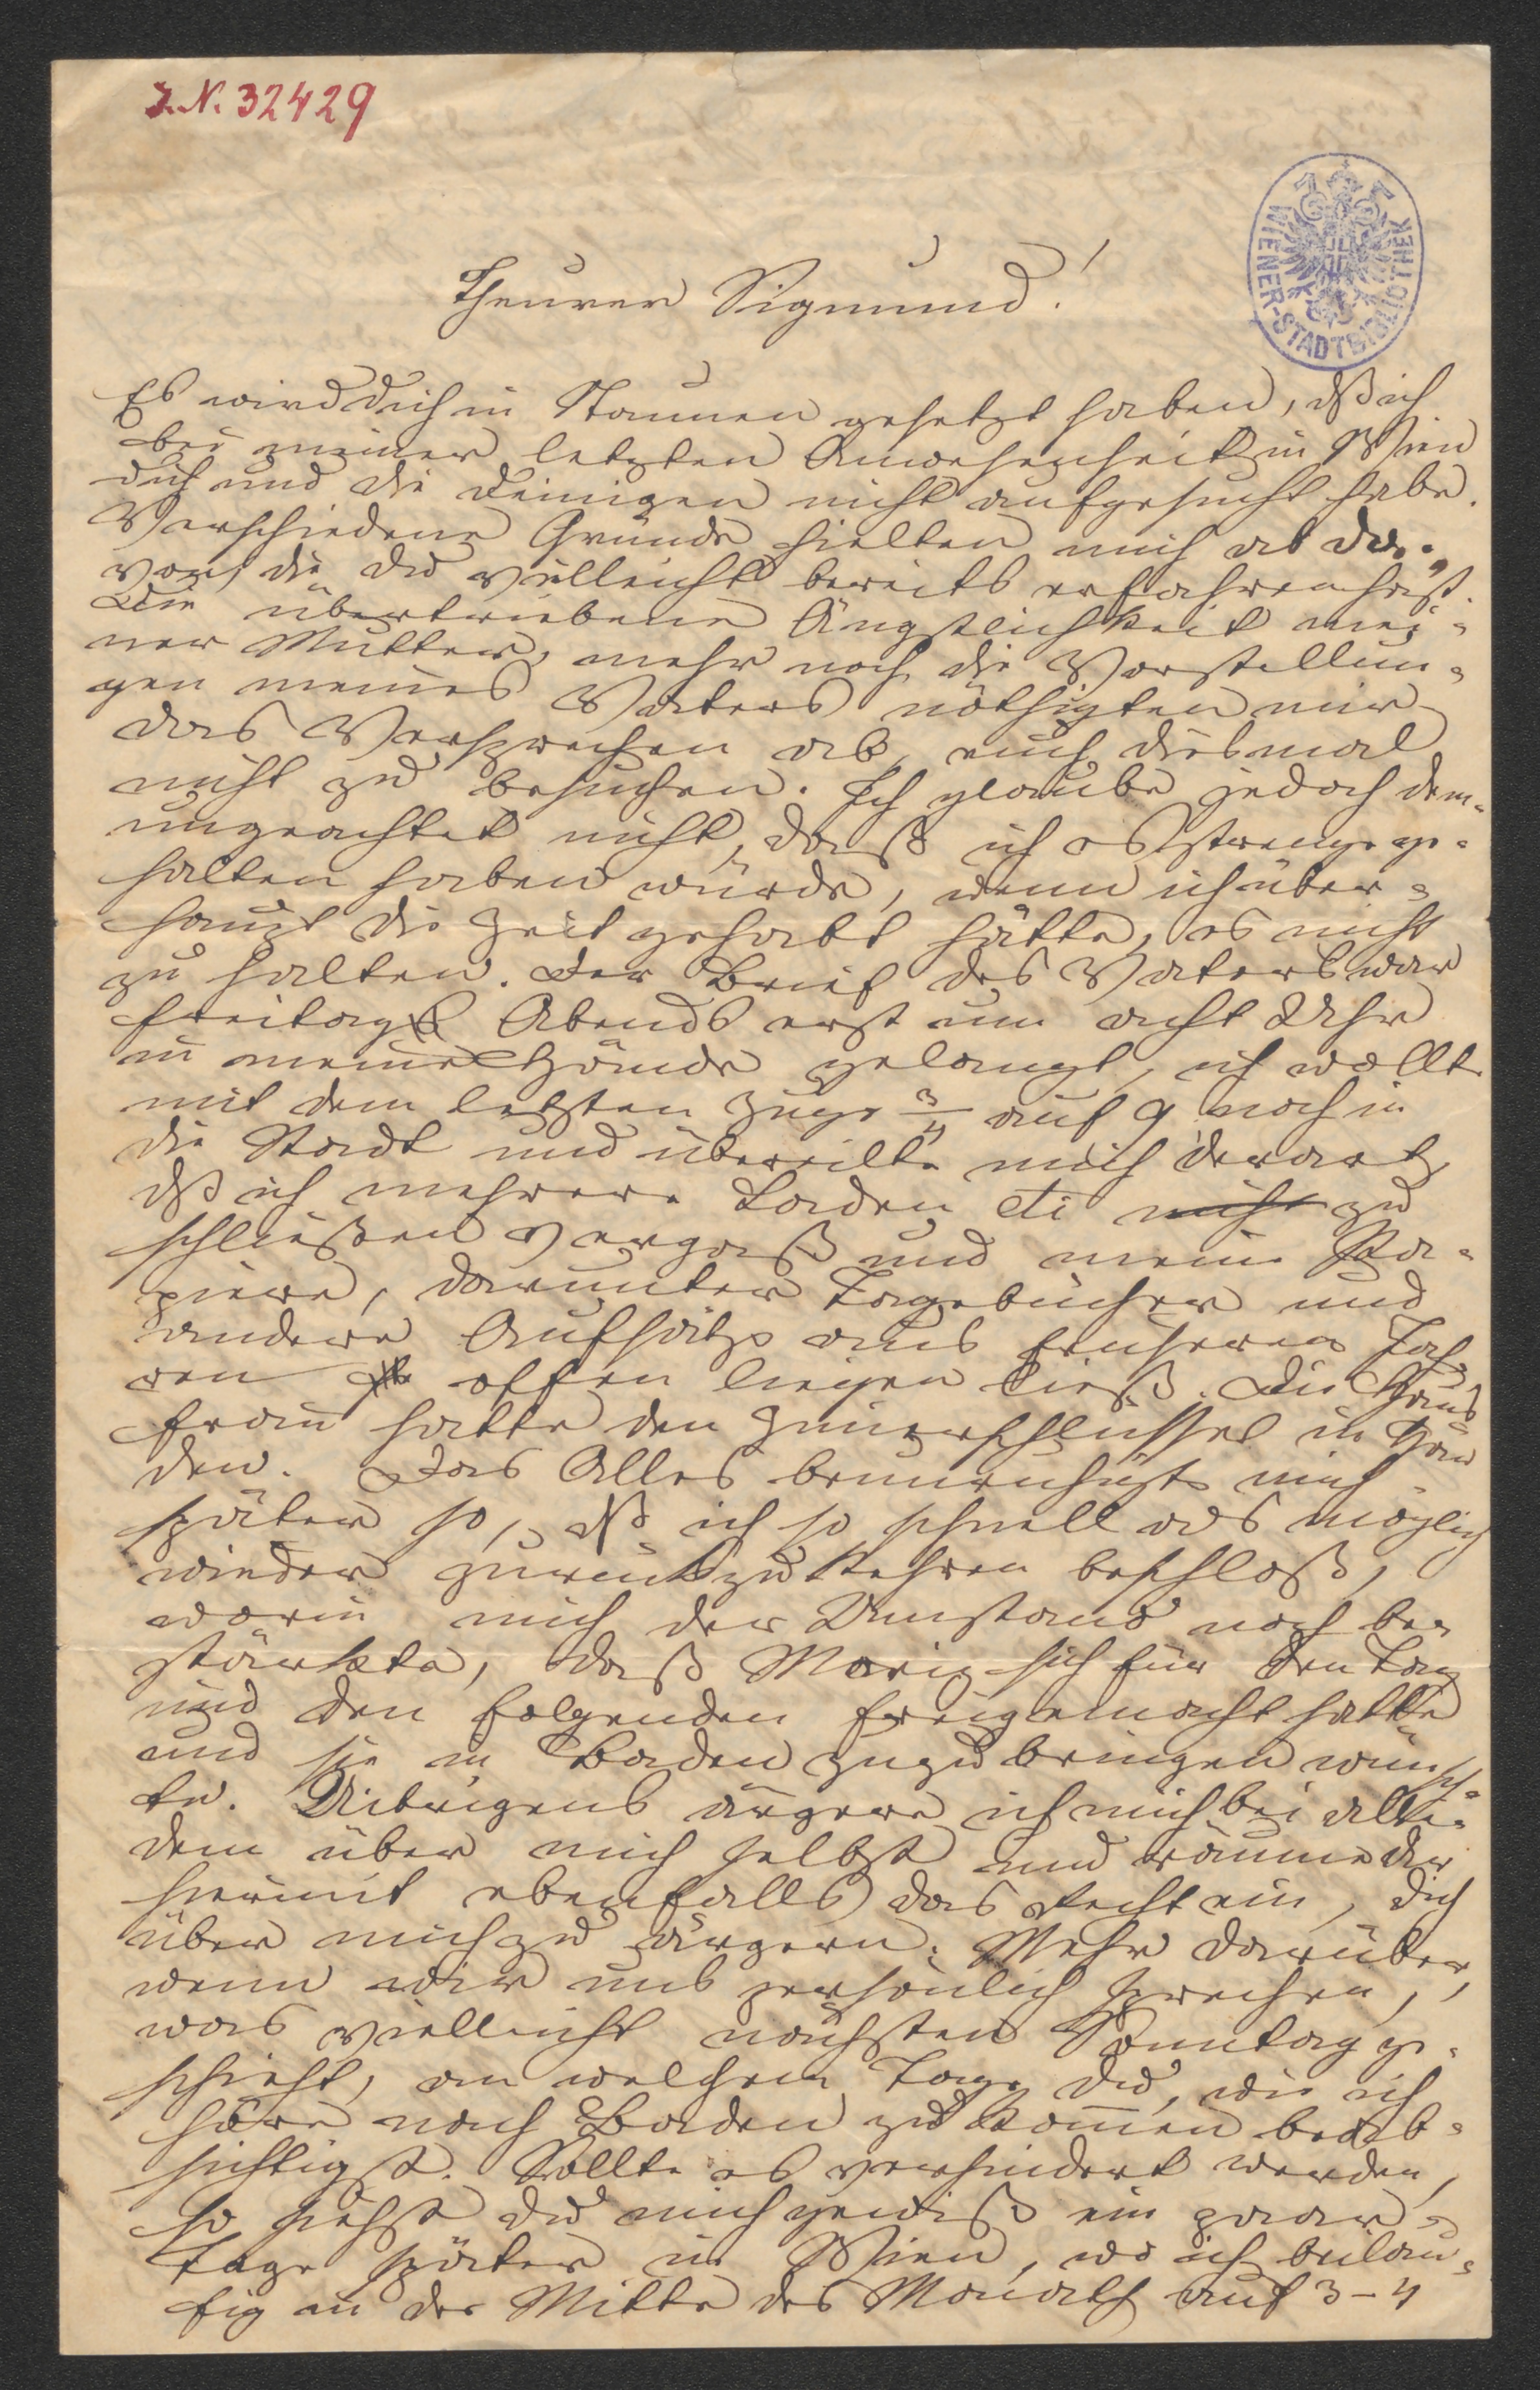 I.N. 32429
WIENER-STADTBIBLIOTHEK
Theurer Sigmund!
Es wird dich in Staunen gesetzt haben, dß ich
bei meiner letzten Anwesenheit in Wien
dich und die Deinigen nicht aufgesucht habe.
Verschiedene Gründe hielten mich ab da-
von, die du vielleicht bereits erfahren hast.
Die übertriebene Ängstlichkeit mei-
ner Mutter, mehr noch die Vorstellun-
gen meines Vaters nöthigten mir
das Versprechen ab, euch diesmal
nicht zu besuchen. Ich glaube jedoch dem-
ungeachtet nicht, daß ich es strenge ge-
halten haben würde, wenn ich über-
haupt die Zeit gehabt hätte, es nicht
zu halten. Der Brief des Vaters war
Freitags Abends erst um acht Uhr
in meine Hände gelangt, ich wollte
mit dem letzten Zuge 3/4 auf 9 noch in
die Stadt und übereilte mich derart,
dß ich mehrere Laden nicht zu
schließen vergaß und meine Pa-
piere, darunter Tagebücher und
andere Aufsätze aus früheren Jah-
ren offen liegen ließ. Die Haus
frau hatte den Zimerschlüssel in Hän
den. Das Alles beunruhigte mich
später so, dß ich so schnell als möglich
wieder zurückzukehren beschloß,
worin mich der Umstand noch be-
stärkte, daß Moriz sich für den Tag
und den folgenden freigemacht hatte
und sie in Baden zuzubringen wünsch-
te. Uibrigens ärgere ich mich bei alle-
dem über mich selbst und räume dir
hiermit ebenfalls das Recht ein, dich
über mich zu ärgern. Mehr darüber,
wenn wir uns persönlich sprechen,
was vielleicht nächsten Sonntag ge-
schieht, an welchem Tage du, wie ich
höre nach Baden zu komen beab-
sichtigst. Sollte es verhindert werden,
so siehst du mich gewiß ein paar
Tage später in Wien, wo ich beiläu-
fig in der Mitte des Monats auf 3-4